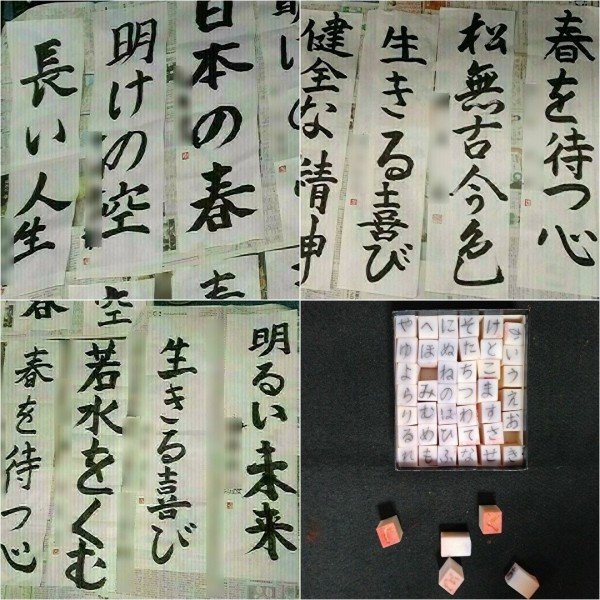 日本の春
明けの空
長い人生
春を待つ心
松無古今色
生きる喜び
健全な精神
明るい未来
生きる喜び
若水をくむ
春を待つ心
や へ に そ け
ゆ ほ ぬ た と い
よ ね ち こ う
ら み の つ ま え
り む は わ す お
る め ひ て さ
れ も ふ な せ き